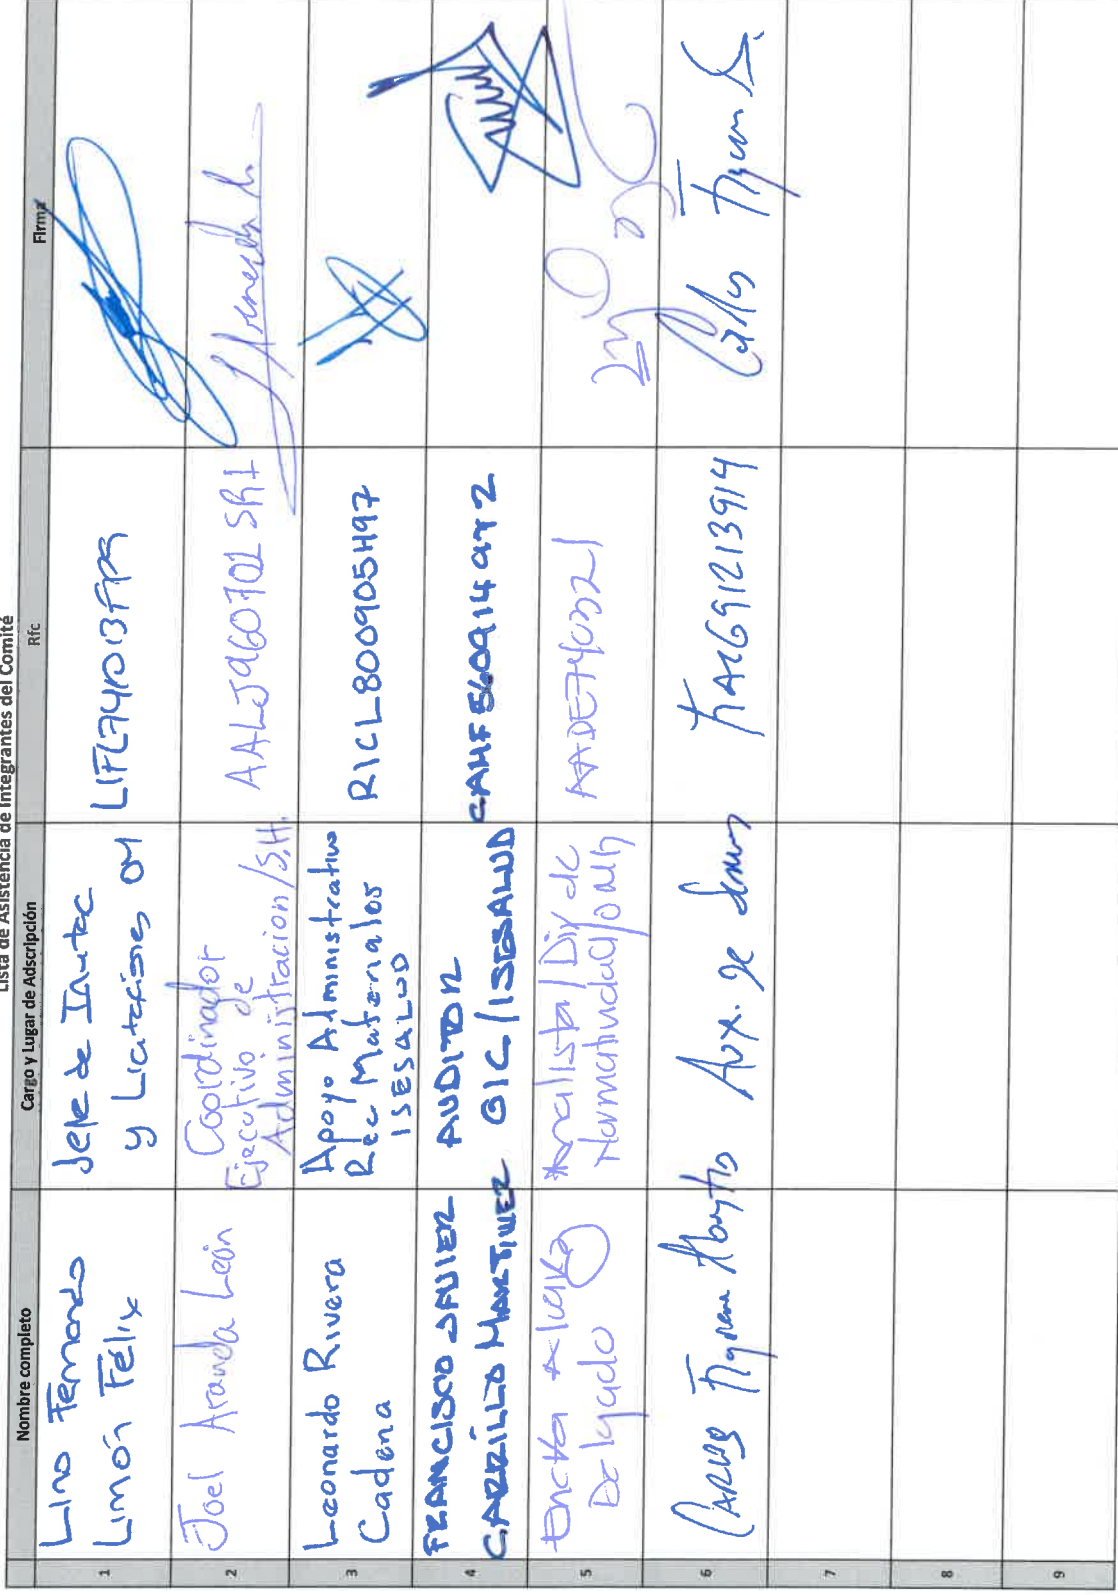 Lista de Asistencia de Integrantes del Comité
Nombre completo Cargo y Lugar de Adscripción Rfc Firma
1
Lino Fernando
Limón Félix
Jefe de Invitac
y Licitaciones OM
2
Joel Aranda León
Coordinador
Ejecutivo de
Administracion/S.H.
AALJ960702SR1
3
Leonardo Rivera
Cadena
Apoyo Administrativo
Rec Materiales
ISESALUD
RICL800905H97
4
FRANCISCO JAVIER
CARRILLO MARTINEZ
AUDITOR
OIC/ISESALUD
5
Delgado
Analista/Dir de
Normatividad/OM
AADE740321
6
Carlos
Aux. de
7
8
9